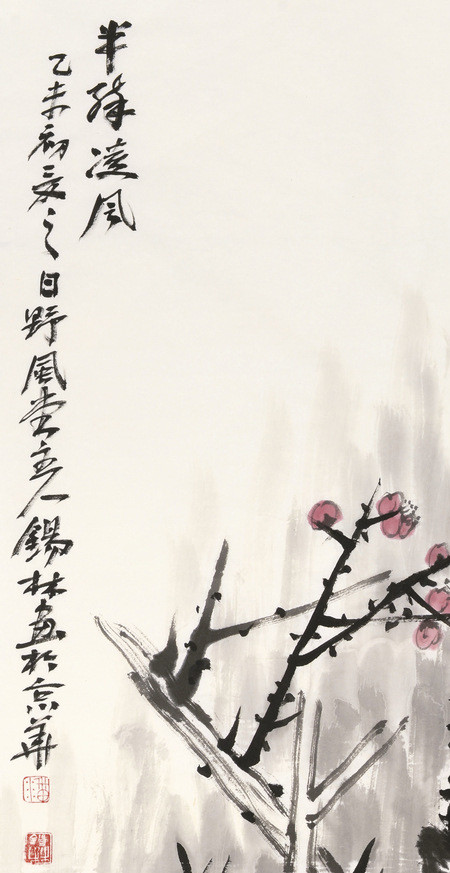 半 凌風
乙未初夏之日野風堂主人錫林畫於京華